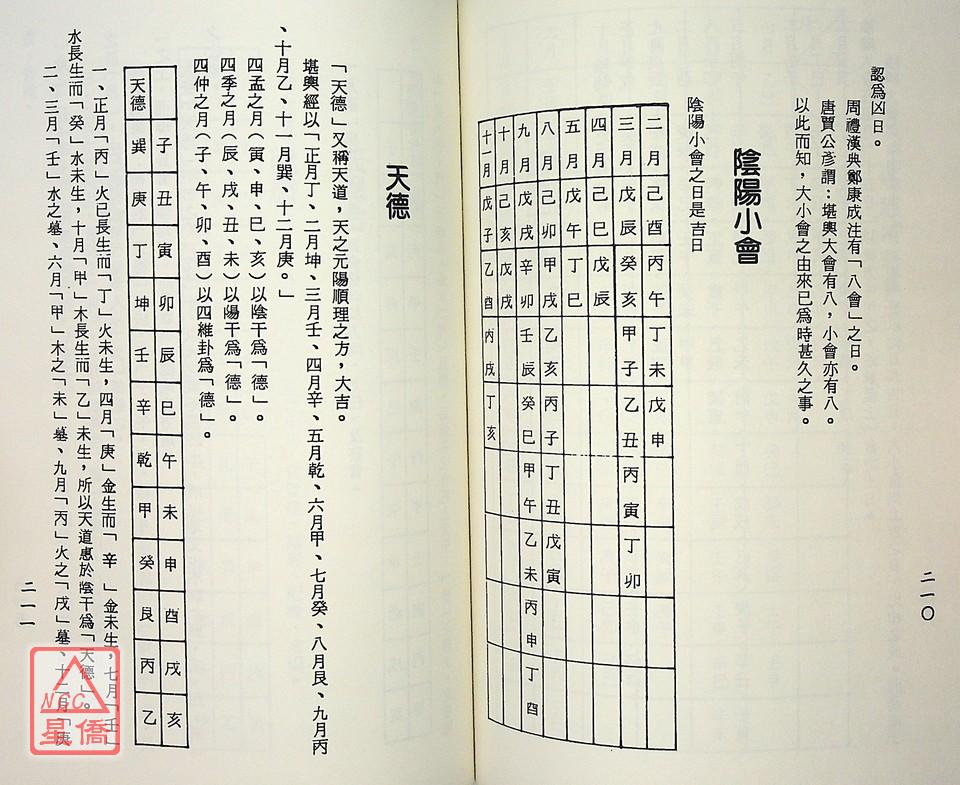 認為凶日。
周禮漢典鄭康成注有「八會」之日。
唐賈公彥謂：堪輿大會有八，小會亦有八。
以此而知，大小會之由來已為時甚久之事。
陰陽小會
陰陽小會之日是吉日
二月 己酉 丙午 丁未 戊申
三月 戊辰 癸亥 甲子 乙丑 丙寅 丁卯
四月 己巳 戊辰
五月 戊午 丁巳
八月 己卯 甲戌 乙亥 丙子 丁丑 戊寅
九月 戊戌 辛卯 壬辰 癸巳 甲午 乙未 丙申 丁酉
十月 己亥 戊戌
十一月 戊子 乙酉 丙戌 丁亥
二一〇
天德
「天德」又稱天道，天之元陽順理之方，大吉。
堪輿經以「正月丁、二月坤、三月壬、四月辛、五月乾、六月甲、七月癸、八月艮、九月丙
、十月乙、十一月巽、十二月庚。」
四孟之月（寅、申、巳、亥）以陰干為「德」。
四季之月（辰、戌、丑、未）以陽干為「德」。
四仲之月（子、午、卯、酉）以四維卦為「德」。
子 丑 寅 卯 辰 巳 午 未 申 酉 戌 亥
天德 巽 庚 丁 坤 壬 辛 乾 甲 癸 艮 丙 乙
一、正月「丙」火已長生而「丁」火未生，四月「庚」金生而「辛」金未生，七月「壬」
水長生而「癸」水未生，十月「甲」木長生而「乙」未生，所以天道惠於陰干為「天德」。
二、三月「壬」水之墓、六月「甲」木之「未」墓、九月「丙」火之「戌」墓、十二月「庚
二一一
NCC
星僑